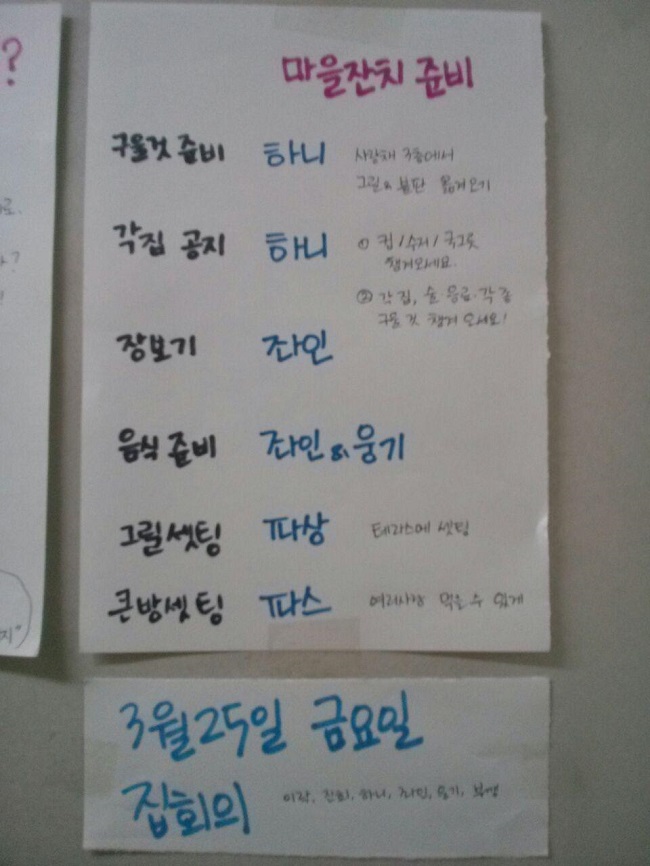 ?
마을잔치 준비
구울것 준비 하니 사랑채 3층에서
그릴 & 불판 옮겨오기
각집 공지 하니 ① 컵/수저/국그릇
챙겨오세요.
② 각 집, 술 음료·각종
구울 것 챙겨 오세요!
장보기 좌인
음식 준비 좌인 & 웅기
그릴셋팅 파상 테라스에 셋팅
큰방셋팅 파스 여러사람 먹을 수 있게
지"
3월 25일 금요일
집회의 하니, 좌인,